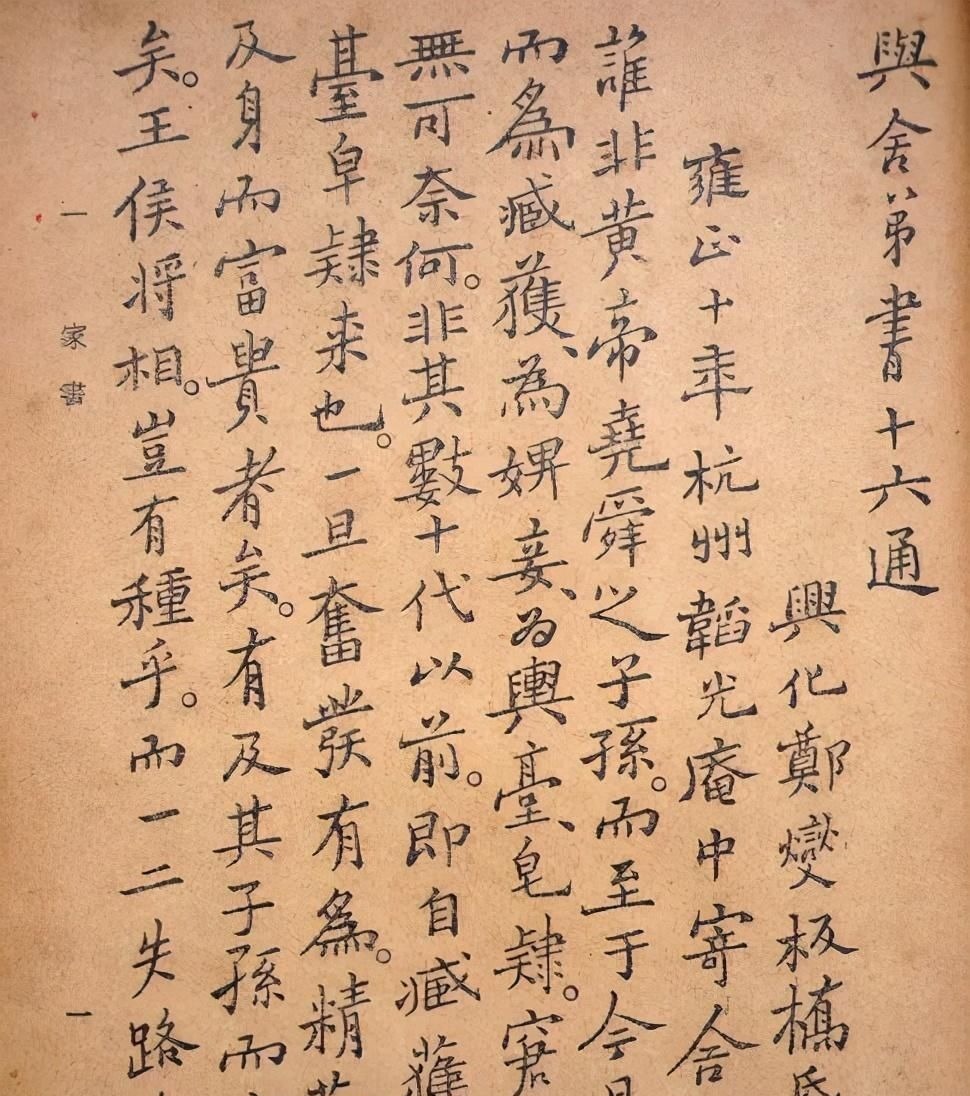 與舍弟書十六通
興化鄭燮板橋
雍正十年杭州韜光庵中寄舍
誰非黃帝堯舜之子孫。而至于今
而為臧獲、為婢妾、為輿臺、皂隸。窘
無可奈何。非其數十代以前。即自臧獲
臺皁隸来也。一旦奮發有為。精
及身而富貴者矣。有及其子孫而
矣。王侯将相。豈有種乎。而一二失路
一 家書 一